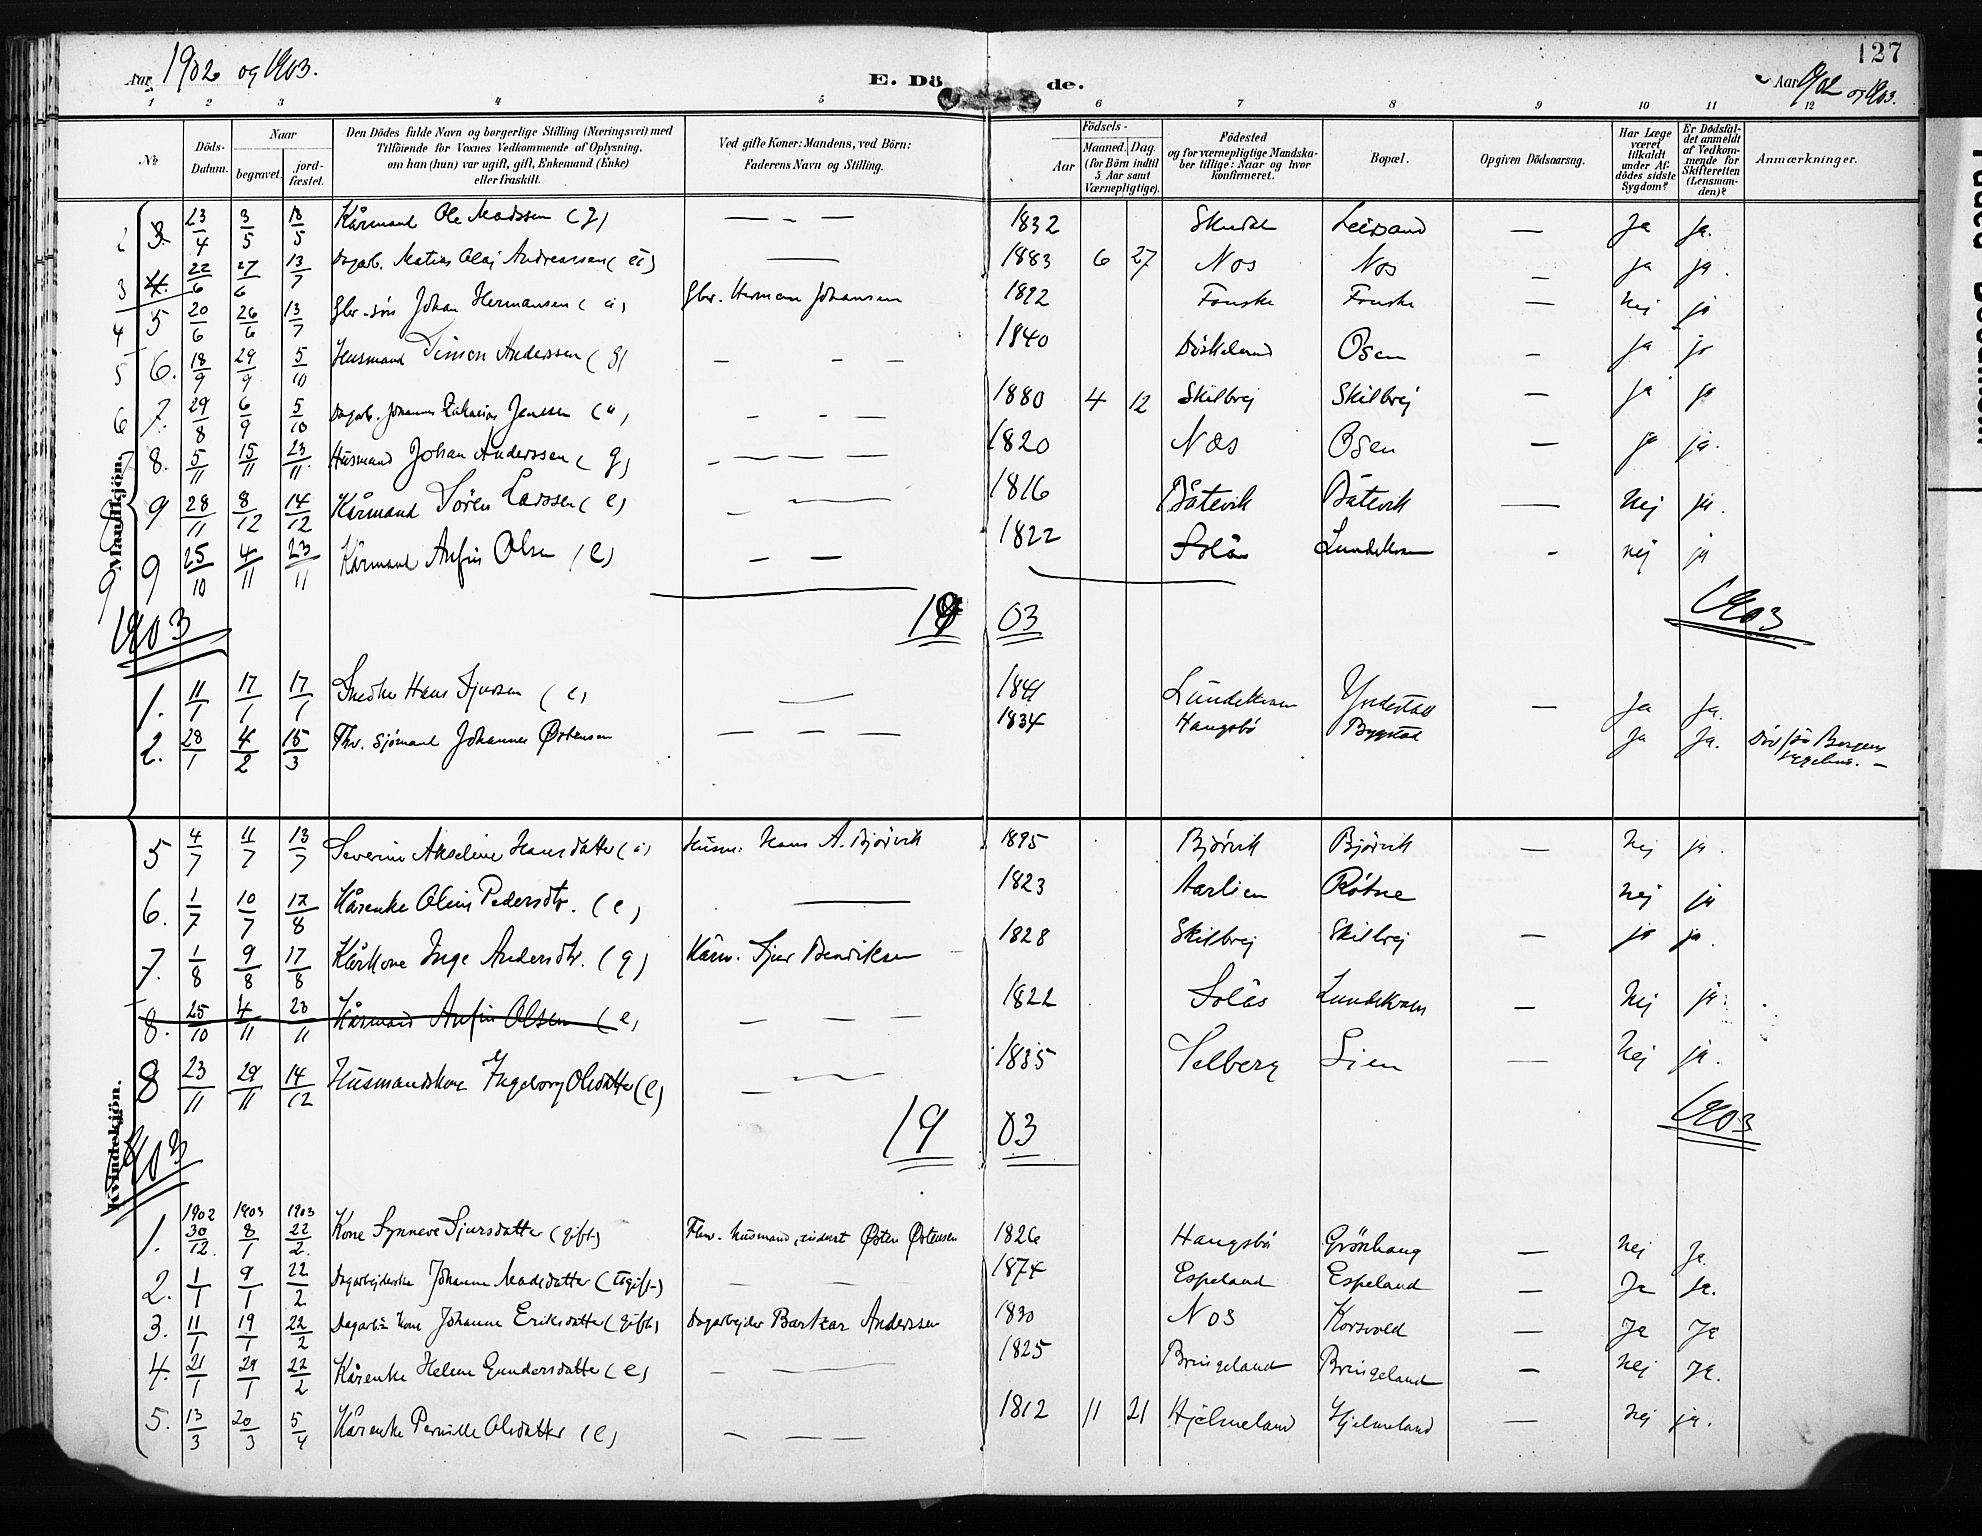 Aar 1902 og 1903.
E. Dö de.
Aar 1902 og 1903.
127
1 2 3 4 5 6 7 8 9 10 11 12
No
Döds-Datum.
Naar
begravet.
jord-fæstet.
Den Dödes fulde Navn og borgerlige Stilling (Næringsvei) med
Tilföiende for Voxnes Vedkommende af Oplysning,
om han (hun) var ugift, gift, Enkemand (Enke)
eller fraskilt.
Ved gifte Koner: Mandens, ved Börn:
Faderens Navn og Stilling.
Födsels-
Aar
Maaned. Dag.
(for Börn indtil
5 Aar samt
Værnepligtige).
Födested
og for værnepligtige Mandska-
ber tillige: Naar og hvor
konfirmeret.
Bopæl.
Opgiven Dödsaarsag.
Har Læge
været
tilkaldt
under Af-
dödes sidste
Sygdom?
Er Dödsfal-
det anmeldt
af Vedkom-
mende for
Skifteretten
(Lensman-
den)?
Anmærkninger.
Mandkjön.
2 3. 23/4 3/5 18/5 Kårmand Ole Madssen (g) — - — 1832 Leirsand — Ja Ja.
3 4. 22/6 27/6 13/7 Dagarb. Matias Olaj Andreassen — 1883 6 27 Nos Nos — ja ja.
4 5 20/6 26/6 13/7 Johan Hermansen Herman Johansen 1892 Fonske Fonske — Nej ja
5 6. 18/9 29/9 5/10 Husmand Simon Anderssen (g) — - — 1840 Döskeland Osen - Ja ja
6 7. 29/8 6/9 5/10 Dagarb. Johannes Zakarias Jenssen (u) - - — 1880 4 12 Skilbrej Skilbrej — Ja ja
7 8. 5/11 15/11 23/11. Husmand Johan Anderssen (g) - — — — 1820 Nos Osen — ja ja.
8 9 28/11 8/12 14/12 Kårmand Sören Larssen (e) - — 1816 Båtevik Båtevik — Nej ja.
9 9 25/10 4/11 23/11 Kårmand Anfin Olsen (e) — — 1822 Solås Lundekvam - nej ja
1903 19 03 1903
1. 11/1 17/1 17/1 Hans Sjursen (e) — 1841 Lundekvam Yndestad — Ja Ja.
2. 28/1 4/2 15/3 Fhv. Sjömand Johannes Østensen — — — 1834 Haugsbö Bygstad Ja Ja. Död på Bergens
sygehus. –
Kvindekjön.
5 4/7 11/7 13/7 Severine Akseline Hansdatter Husm. Hans A. Björvik 1895 Björvik Björvik — Nej ja.
6. 1/7 10/7 17/8 Kårenke Oline Pedersdtr. (e) — 1823 Aarlien Rötne nej ja
7. 1/8 9/8 17/8 Kårkone Inge Andersdtr. (g) Kårm. Sjur Bendiksen 1828 Skilbrej Skilbrej — ja ja.
8. 25/10 4/11 23/11 Kårmand Anfin Olsen (e) — — — 1822 Solås Lundekvam — Nej ja.
8 23/11 29/11 14/12 Husmandskone Ingeborg Olsdatter (e) — — 1835 Selberg Lien — Nej ja.
1903 19 03 1903
1. 1902 30/12. 1903 8/1 1903 22/2. Kone Synneve Sjursdatter (gift) Fhv. husmand, Østen Østensen 1826 Haugsbö Grönhaug — Nej Ja.
2. 1/1 9/1 22/2 Dagarbejderske Johanne Madsdatter (ugift) — — 1874 Espeland Espeland — Ja Ja.
3. 11/1 19/1 22/2 Dagarb. kone Johanne Eriksdatter (gift) Dagarbejder Bartzar Anderssen 1830 Nos Korsvold — Ja Ja
4. 21/1 29/1 22/2 Kårenke Helene Gundersdatter (e) - — 1825 Bringeland Bringeland — Nej Ja.
5. 13/3 20/3 5/4 Kårenke Pernille Olsdatter (e) - — — 1812 11 21 Hjelmeland Hjelmeland — Nej ja.